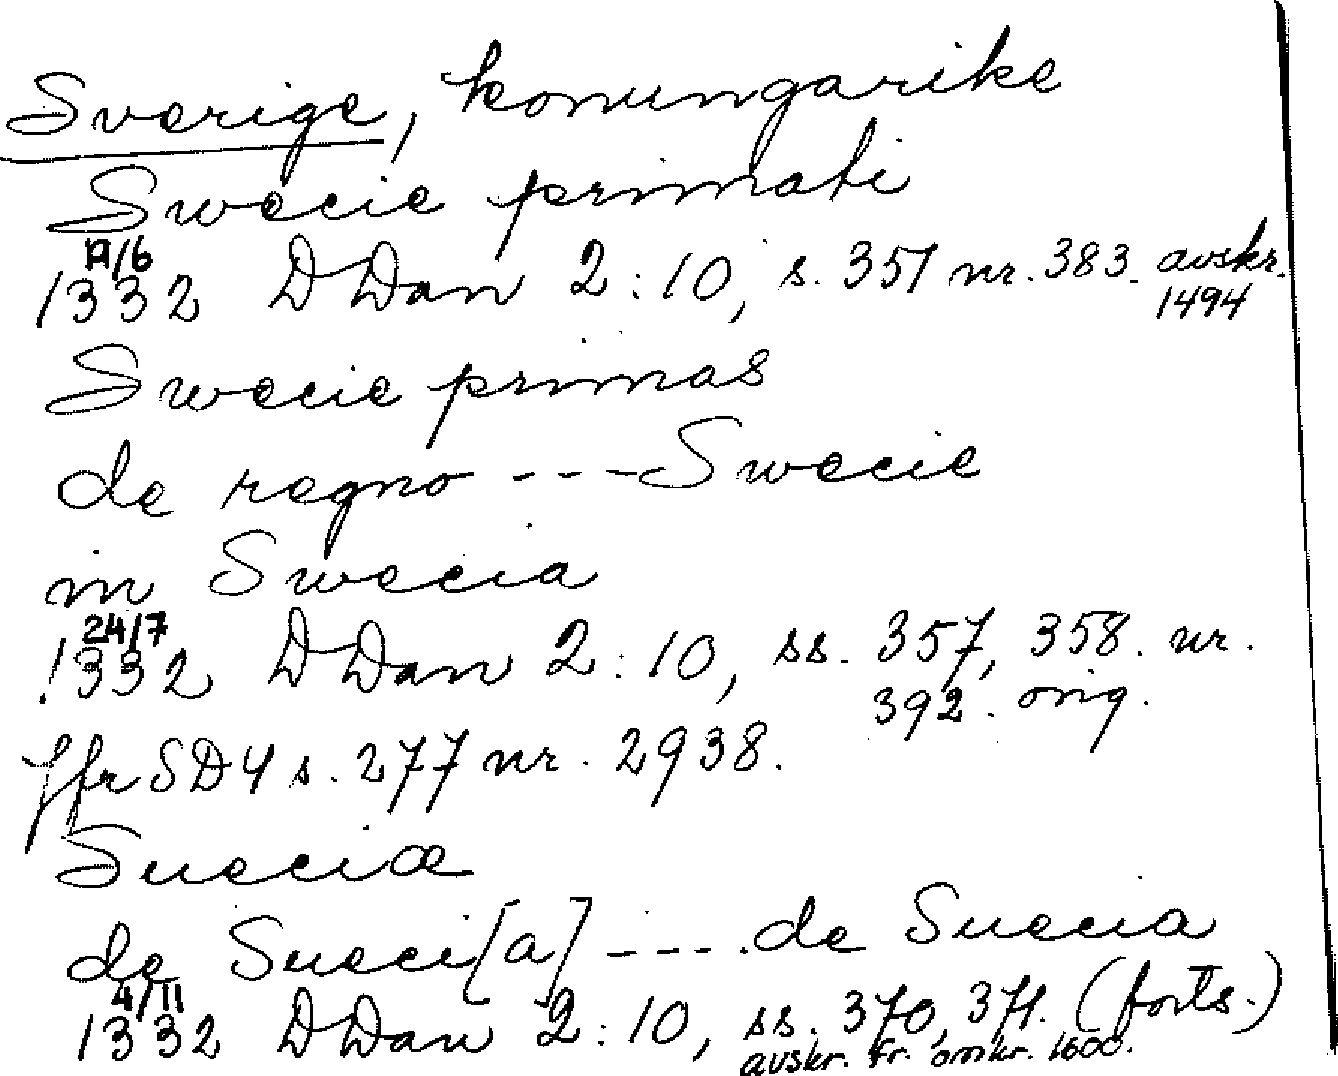 Sverige, konungarike
Swecie primati
17/6
1332 DDan 2:10, s. 351 nr. 383. avskr.
1494
Swecie primas
de regno --- Swecie
in Swecia
24/7
1332 DDan 2:10, ss. 357, 358. nr.
392. orig.
Jfr SD4 s. 277 nr. 2938.
Sueciæ
de Sueci[a] ---. de Suecia
4/11
1332 DDan 2:10, ss. 370, 371. (forts.)
avskr. fr. omkr. 1600.